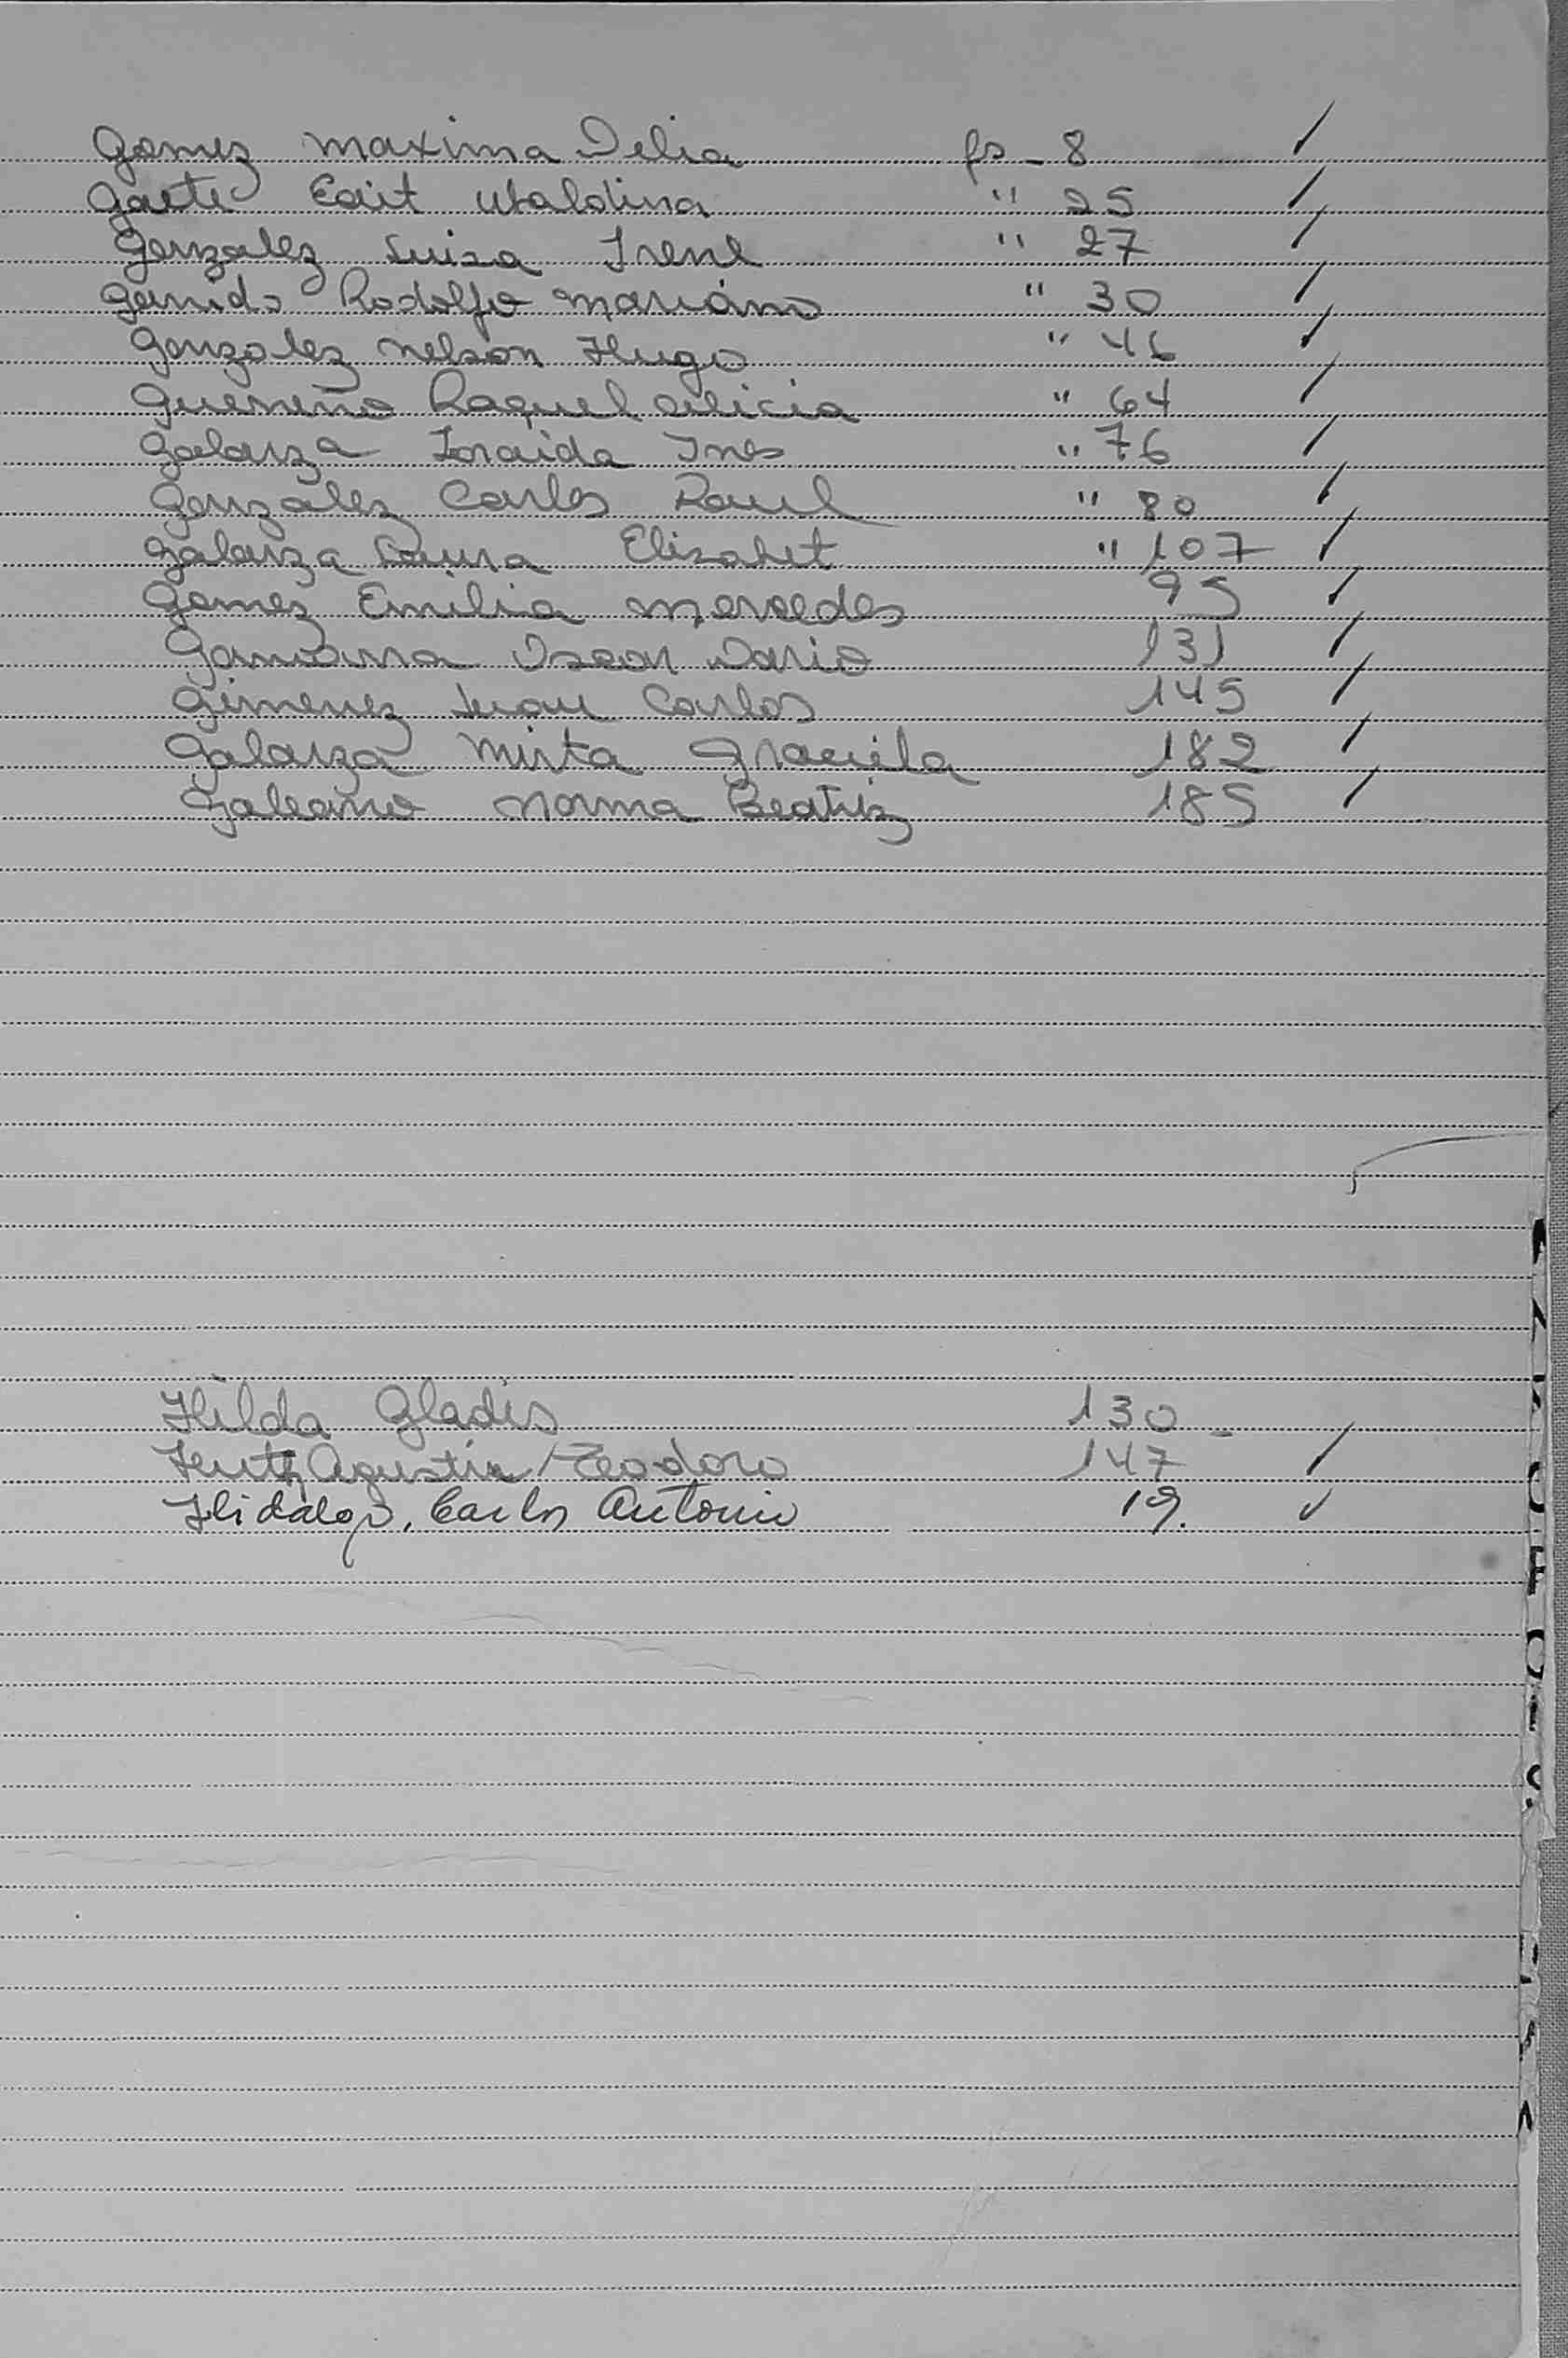 Gomez Maxima Delia fs - 8 ✓
Gaete Edit Ubaldina " 25 ✓
Gonzalez Luisa Irene " 27 ✓
Garrido Rodolfo Mariano " 30 ✓
Gonzalez Nelson Hugo " 46 ✓
Guerreño Raquel Alicia " 64 ✓
Galarza Zoraida Ines " 76 ✓
Gonzalez Carlos Raul " 80 ✓
Galarza Laura Elisabet " 107 ✓
Gomez Emilia Mercedes 95 ✓
Gamarra Oscar Dario 131 ✓
Gimenez Juan Carlos 145 ✓
Galarza Mirta Graciela 182 ✓
Galeano Norma Beatriz 185 ✓
Hilda Gladis 130 -
Agustin Teodoro 147 ✓
Hidalgo, Carlos Antonio 19. ✓